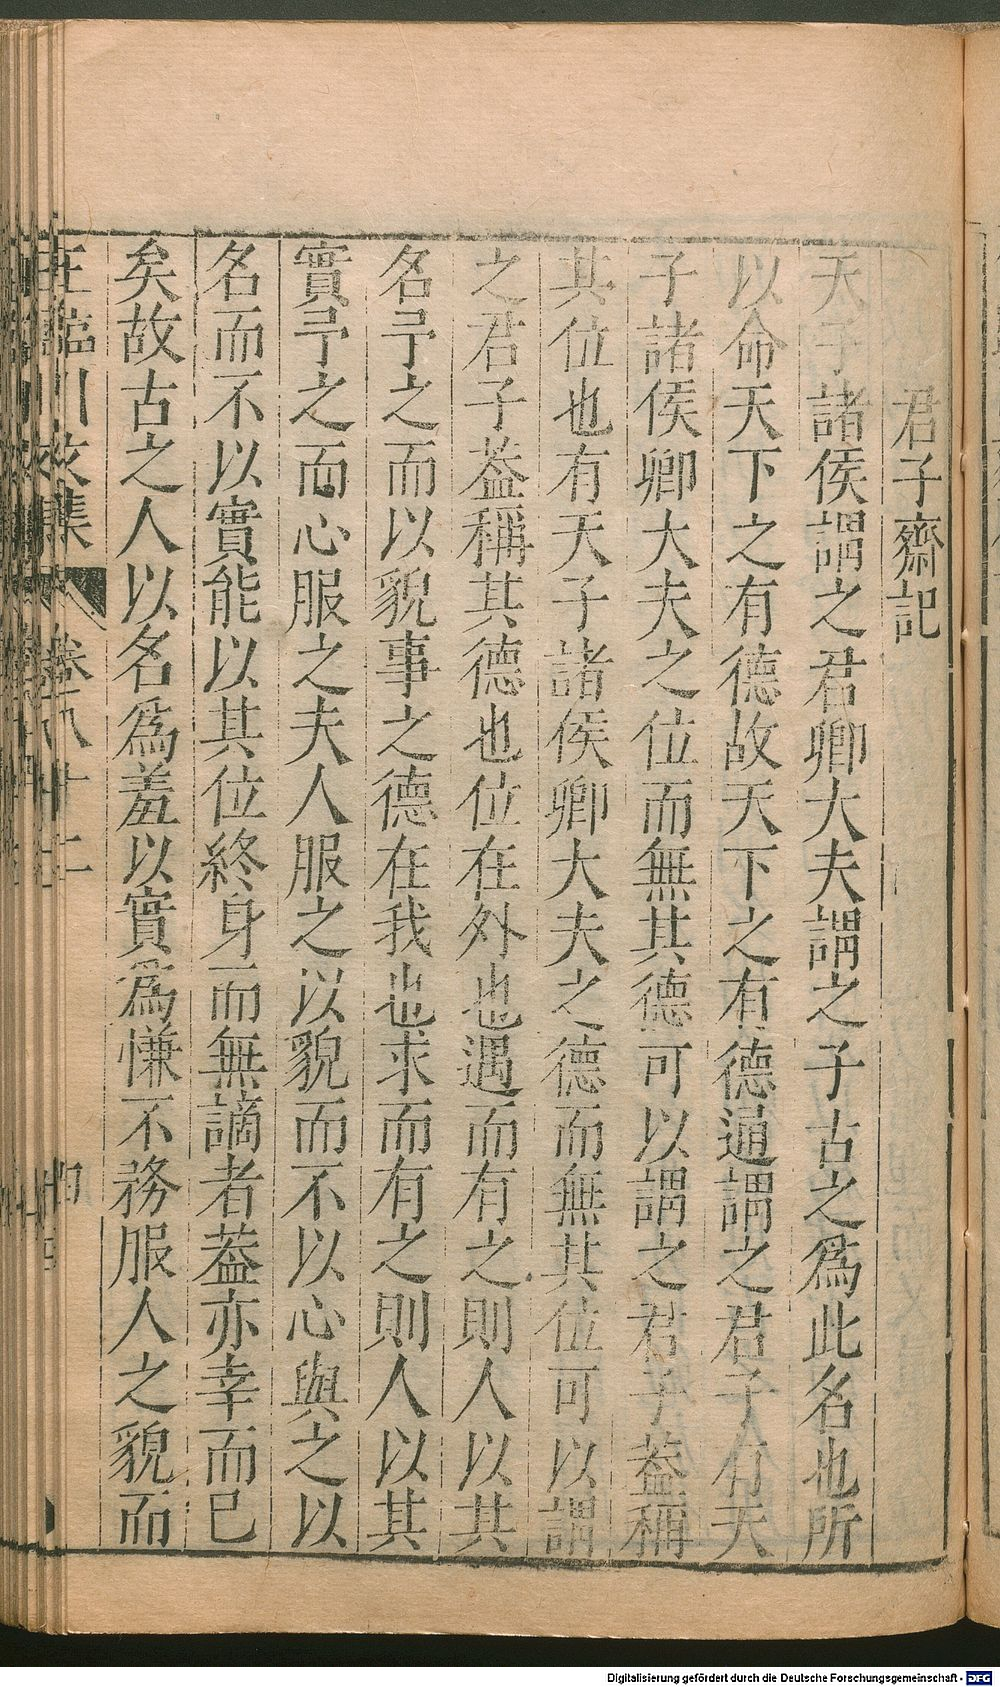 君子齋記
天子諸侯謂之君卿大夫謂之子古之爲此名也所
以命天下之有德故天下之有德通謂之君子有天
子諸侯卿大夫之位而無其德可以謂之君子葢稱
其位也有天子諸侯卿大夫之德而無其位可以謂
之君子葢稱其德也位在外也遇而有之則人以其
名予之而以貌事之德在我也求而有之則人以其
實予之而心服之夫人服之以貌而不以心與之以
名而不以實能以其位終身而無謫者葢亦幸而已
矣故古之人以名爲羞以實爲慊不務服人之貌而
王臨川文集 卷八十二 四
Digitalisierung gefördert durch die Deutsche Forschungsgemeinschaft - DFG